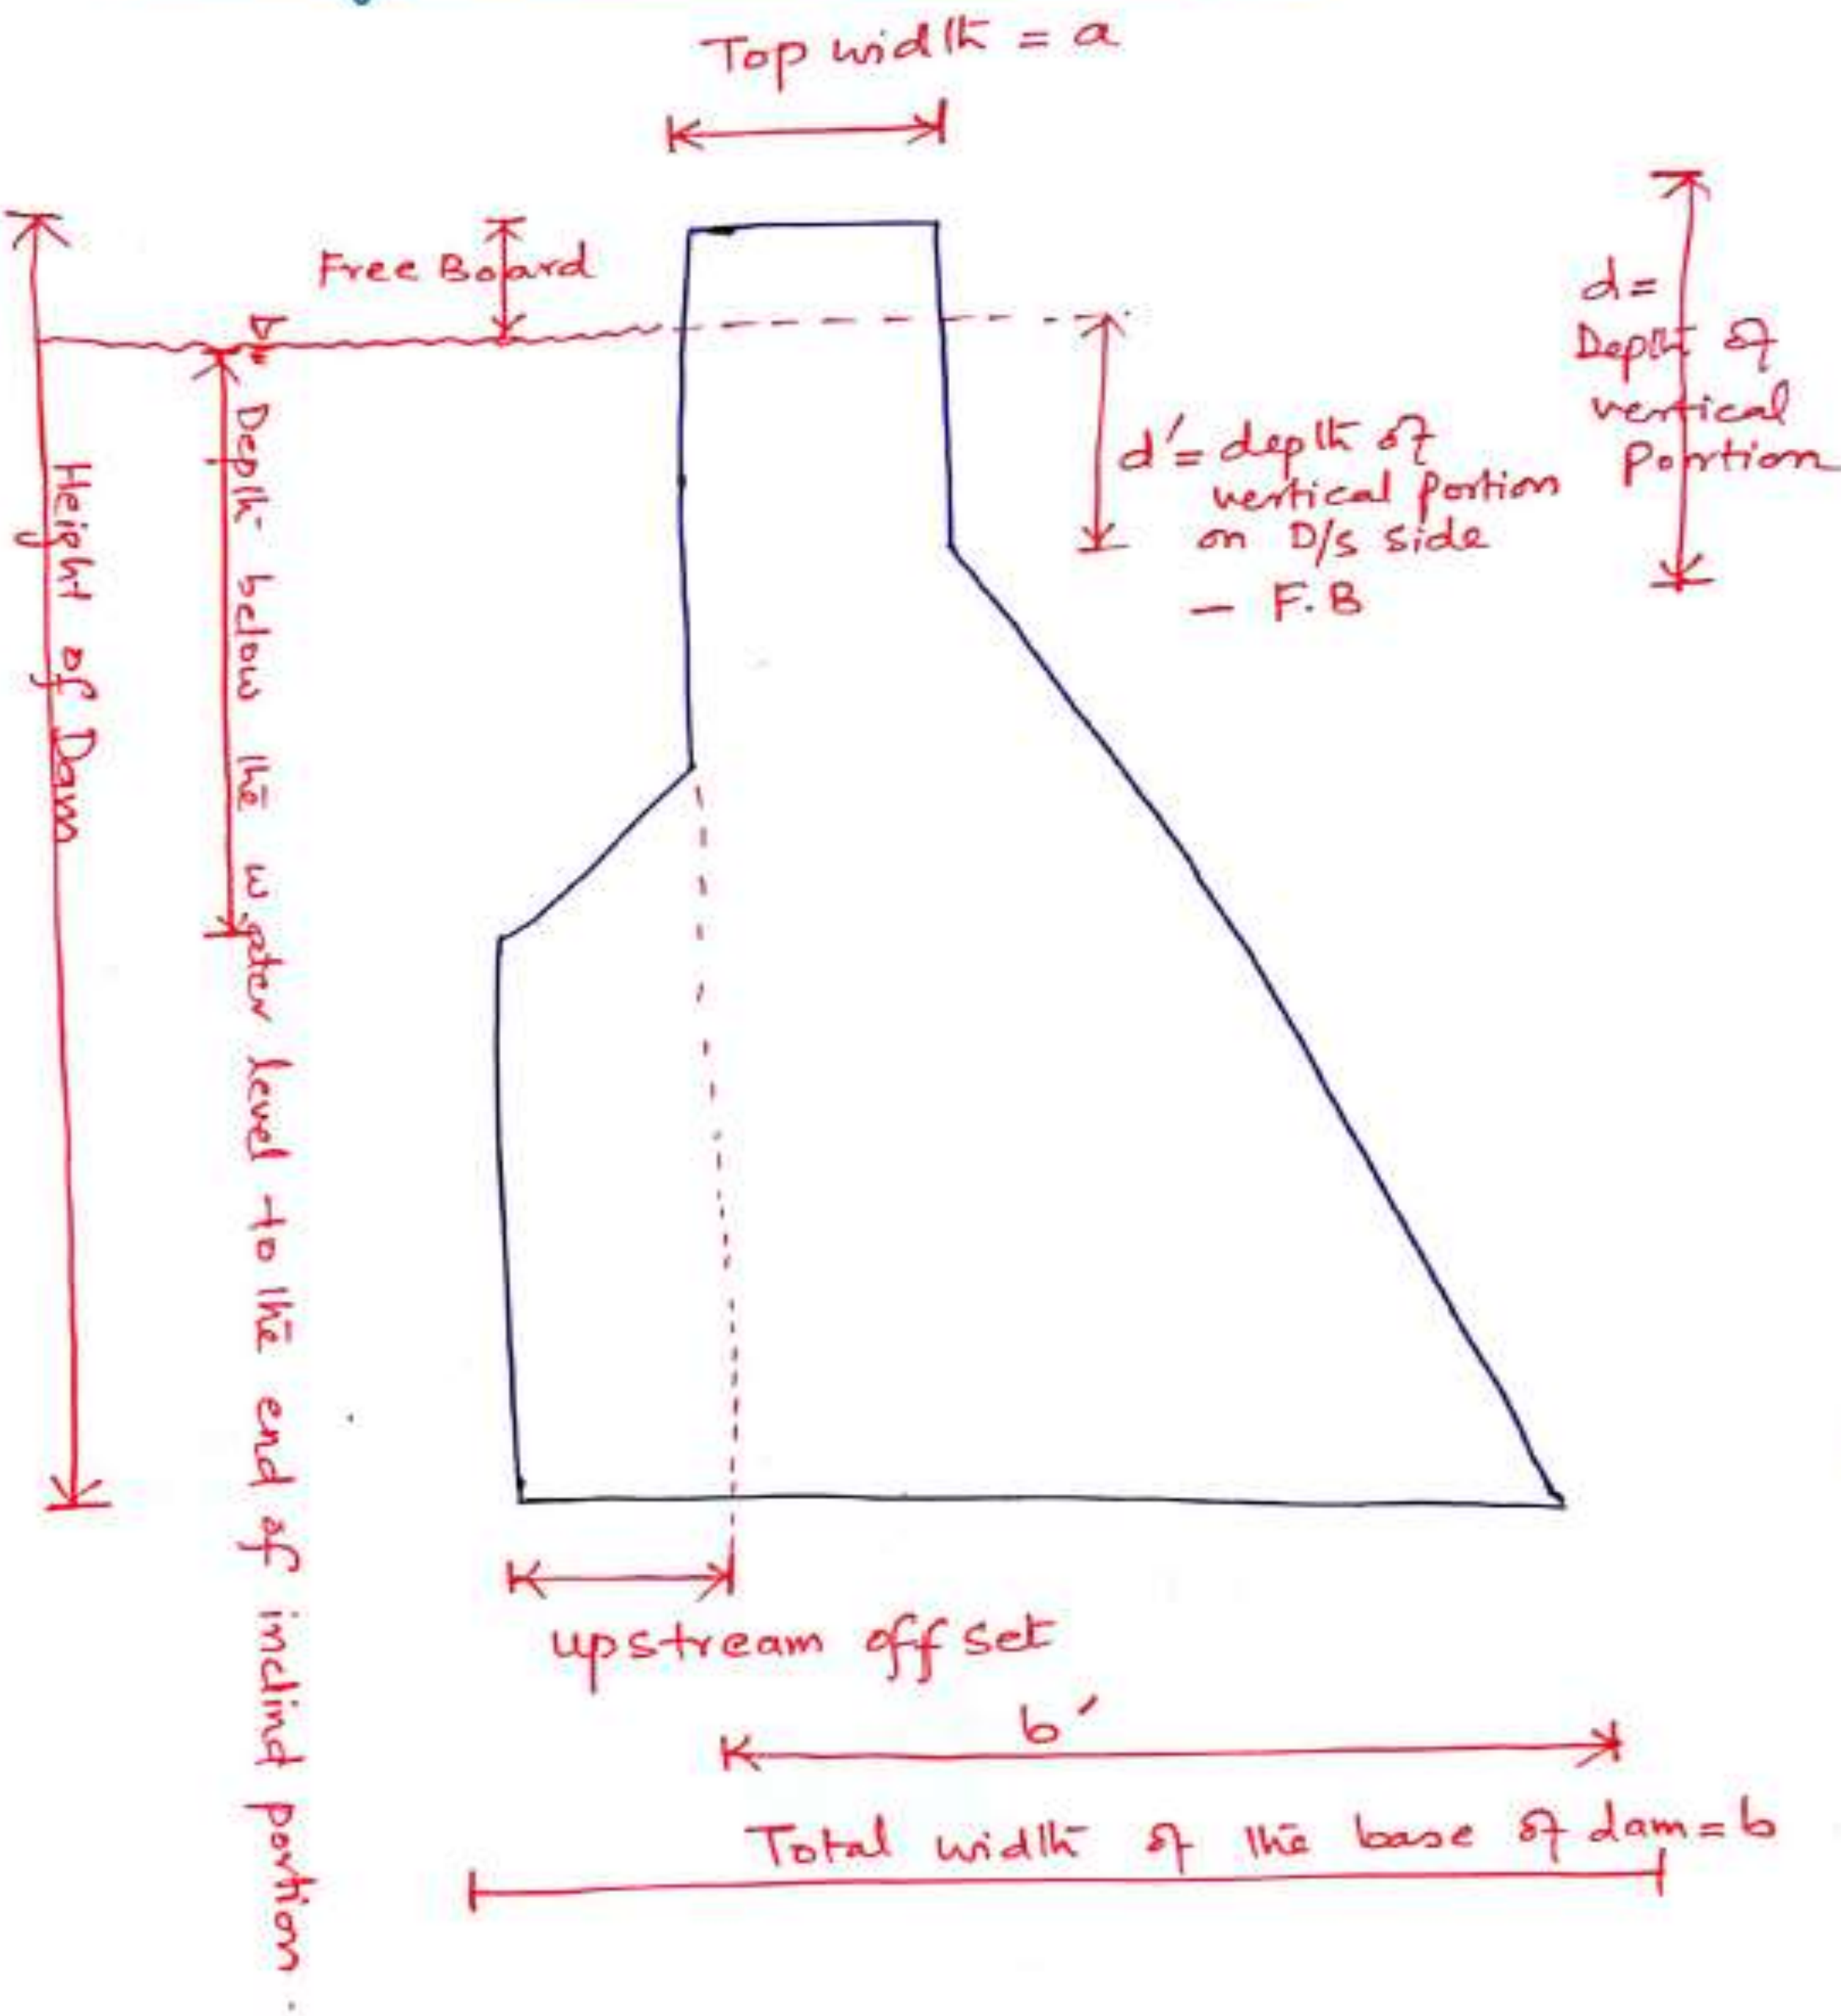 Top width = a
Free Board
d=
Depth of
vertical
portion
d'= depth of
vertical portion
on D/s side
- F.B
Height of Dam
Depth below the water level to the end of inclind portion.
upstream off set
b'
Total width of the base of dam = b